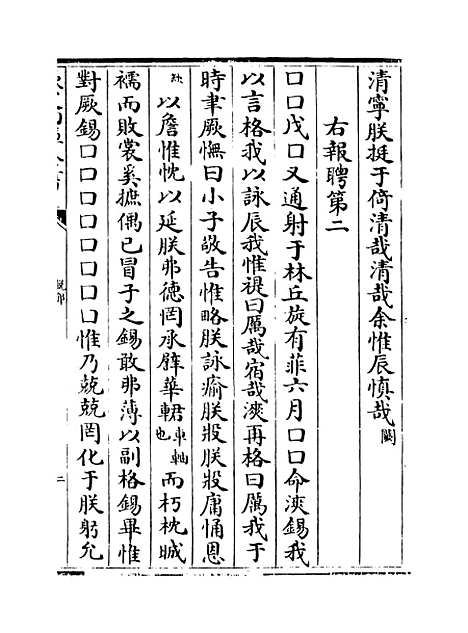 清寧朕挺于倚清哉清哉余惟辰慎哉闕
右報聘第二
口口戊口又通射于林丘旋有菲六月口口命浹錫我
以言格我以詠辰我惟禔曰厲哉宿哉浹再格曰厲我于
時聿厥憮曰小子敬告惟略朕詠瘉朕股朕股庸恫恩
以詹惟忱以延朕弗德罔承廦華軲車軸也而朽枕
襦而敗裳奚摭偶已冒子之錫敢弗薄以副格錫畢惟
對厥錫口口口口口口口口惟乃兢兢罔化于朕躬允
二